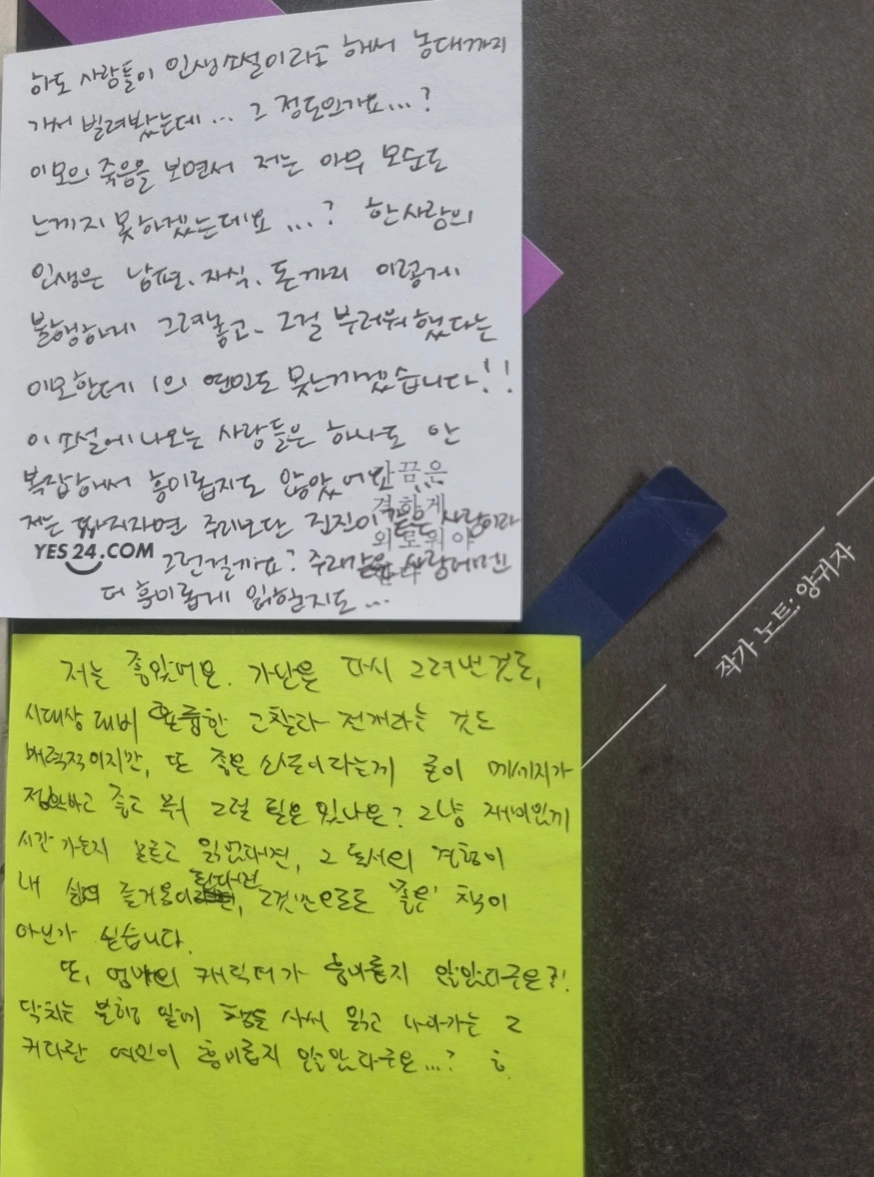 하도 사람들이 인생소설이라고 해서 농대까지
가서 빌려봤는데... 그 정도인가요...?
이모의 죽음을 보면서 저는 아무 모순도
느끼지 못하겠는데요...? 한사람의
인생은 남편, 자식, 돈까지 이렇게
불행하게 그려놓고, 그걸 부러워했다는
이모한테 1의 연민도 못느끼겠습니다!!
이 소설에 나오는 사람들은 하나도 안
복잡해서 흥미롭지도 않았어요
저는 따지자면 주리보단 진진이 같은 사람이라
그런걸까요? 주리같은 사람에겐
더 흥미롭게 읽힐지도...
YES24.COM
가끔은
격하게
외로워야
저는 좋았어요. 가난을 다시 그려낸것도,
시대상 대비 훌륭한 고찰과 전개라는 것도
매력적이지만, 또 좋은 소설이라는게 굳이 메세지가
정확하고 좋고 뭐 그럴 필요 있나요? 그냥 재미있게
시간 가는지 모르고 읽었다면, 그 독서의 경험이
내 삶의 즐거움이 된다면, 그것만으로도 '좋은' 책이
아닌가 싶습니다.
또, 엄마의 캐릭터가 흥미롭지 않았다구요?!
닥치는 불행 앞에 책을 사서 읽고 나아가는 그
커다란 여인이 흥미롭지 않았다구요...?
작가 노트: 양귀자